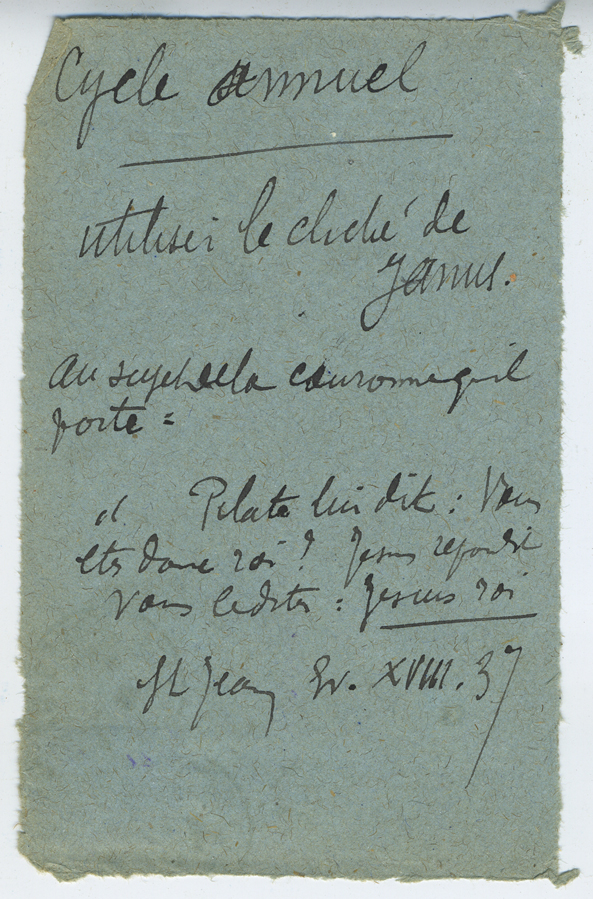 Cycle annuel
utiliser le cliché de
Janus.
au sujet de la couronne qu'il
porte =
" Pilate lui dit : Vous
etes donc roi ? Jesus repondit
Vous le dites : Je suis roi
St Jean Ev. XVIII. 37